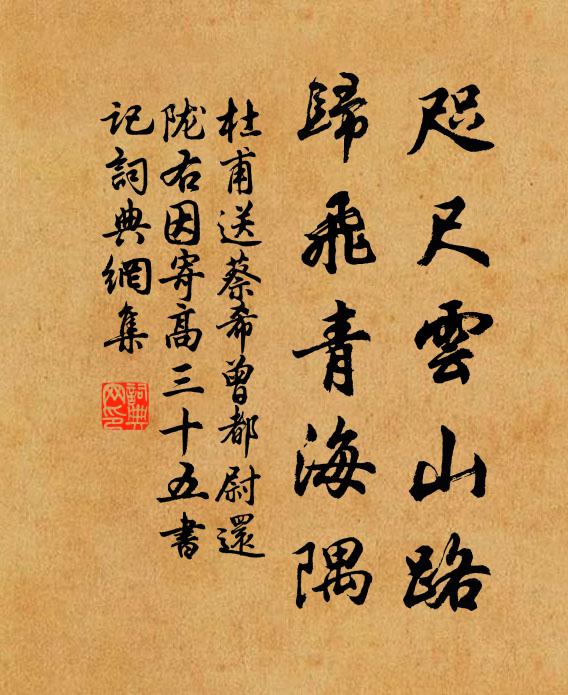 咫尺雲山路
歸飛青海隅
杜甫送蔡希曾都尉還
陇右因寄高三十五書
記詞典網集
詞典
网印